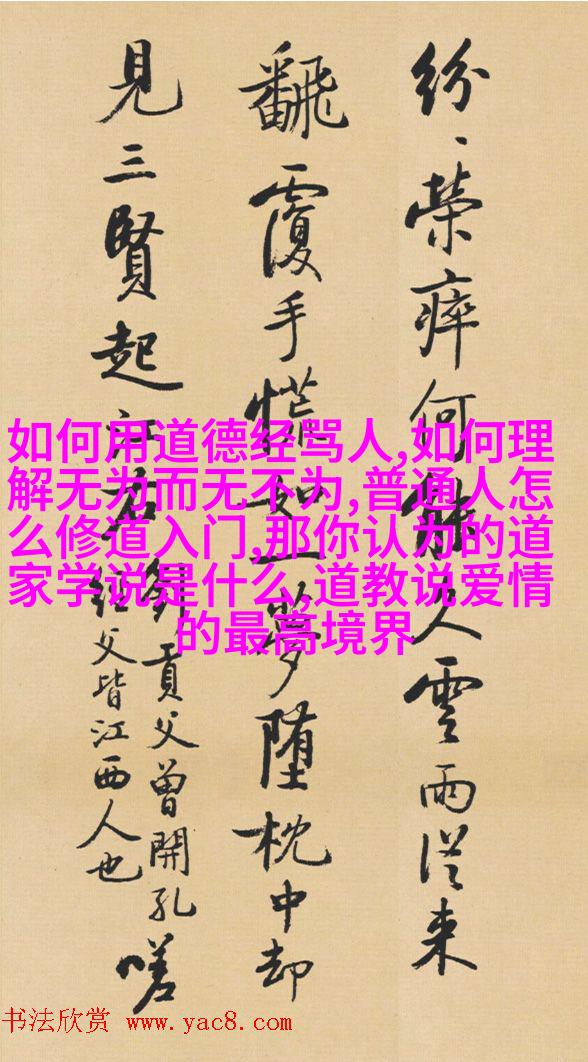 紛、榮瘁何能久雲雨從来
飜覆手慌如一夢墮枕中却
見三賢起江右
劉貢父曾開孔
經父皆江西人也
嗟
如何用道德经骂人,如何理
解无为而无不为,普通人怎
么修道入门,那你认为的道
家学说是什么,道教说爱情
的最高境界
书法欣赏 www.yac8.com